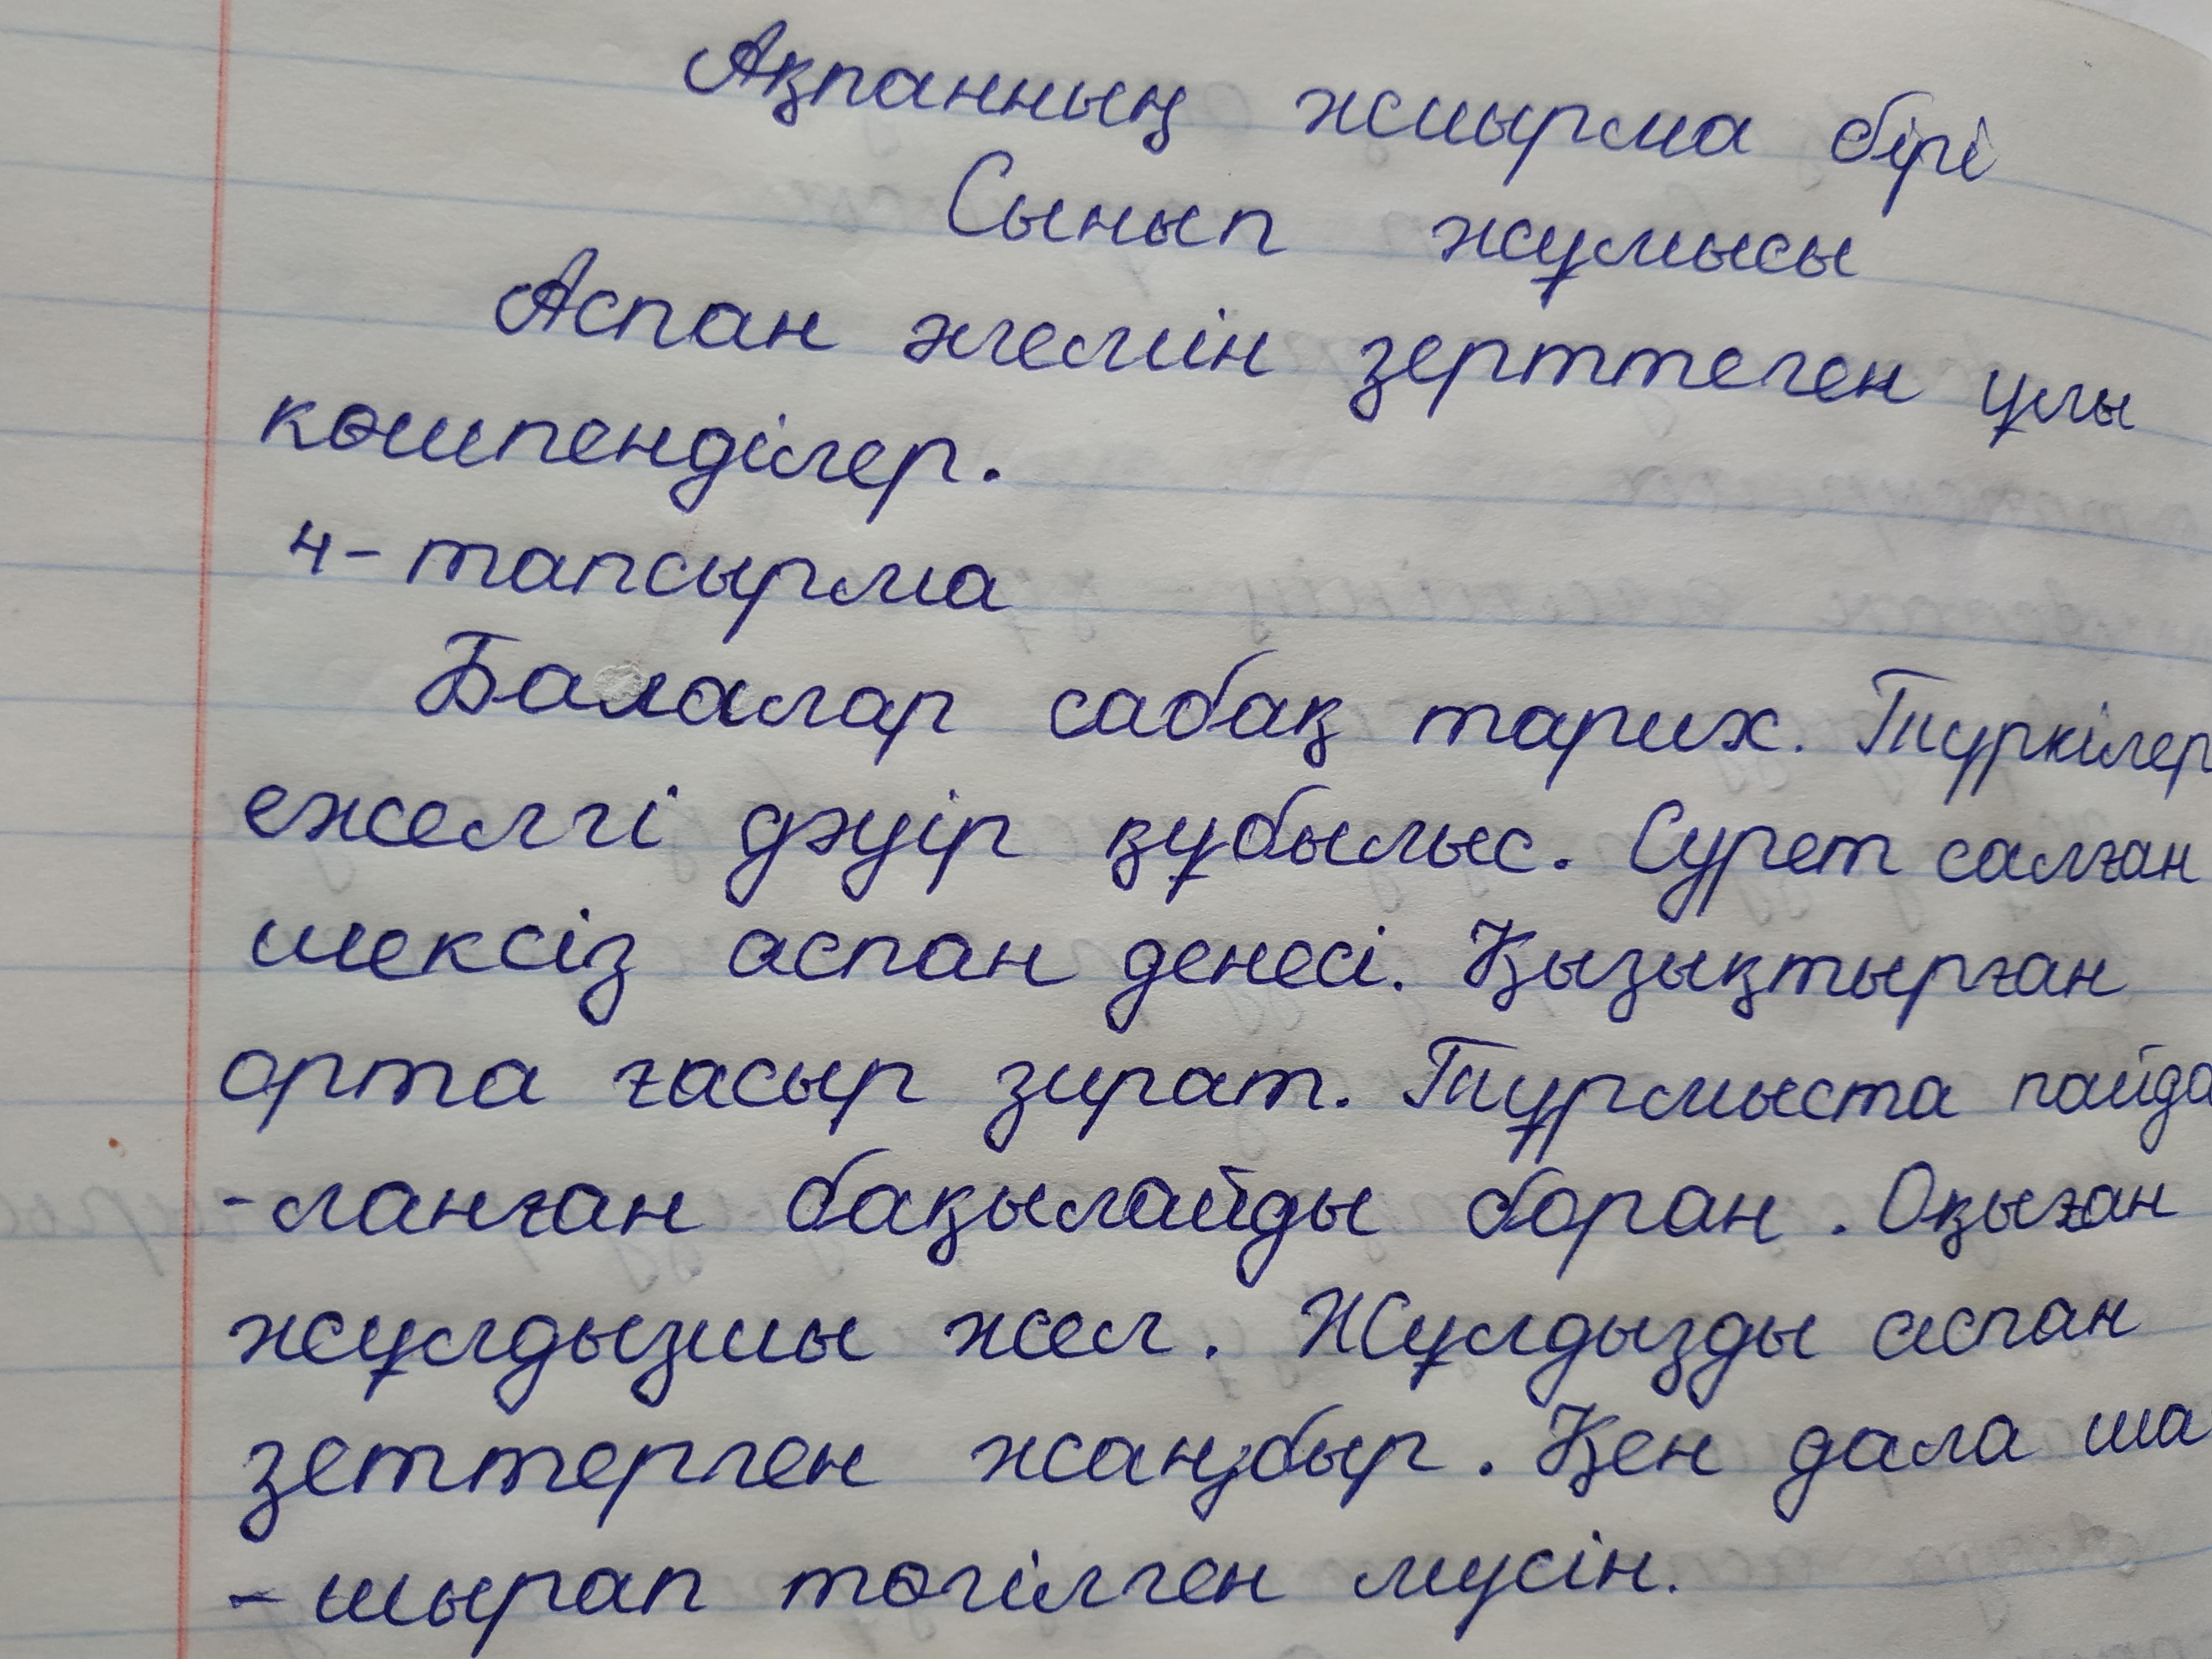 Ақпанның жиырма бірі
Сынып жұмысы
Аспан әлемін зерттеген ұлы
көшпенділер.
4-тапсырма
Балалар сабақ тарих. Түркілер
ежелгі дәуір құбылыс. Сурет салған
шексіз аспан денесі. Қызықтырған
орта ғасыр зират. Тұрмыста пайда
-ланған бақылайды боран. Оқыған
жұлдызшы жел. Жұлдызды аспан
зеттерген жаңбыр. Қең дала ша
-шырап төгілген мүсін.